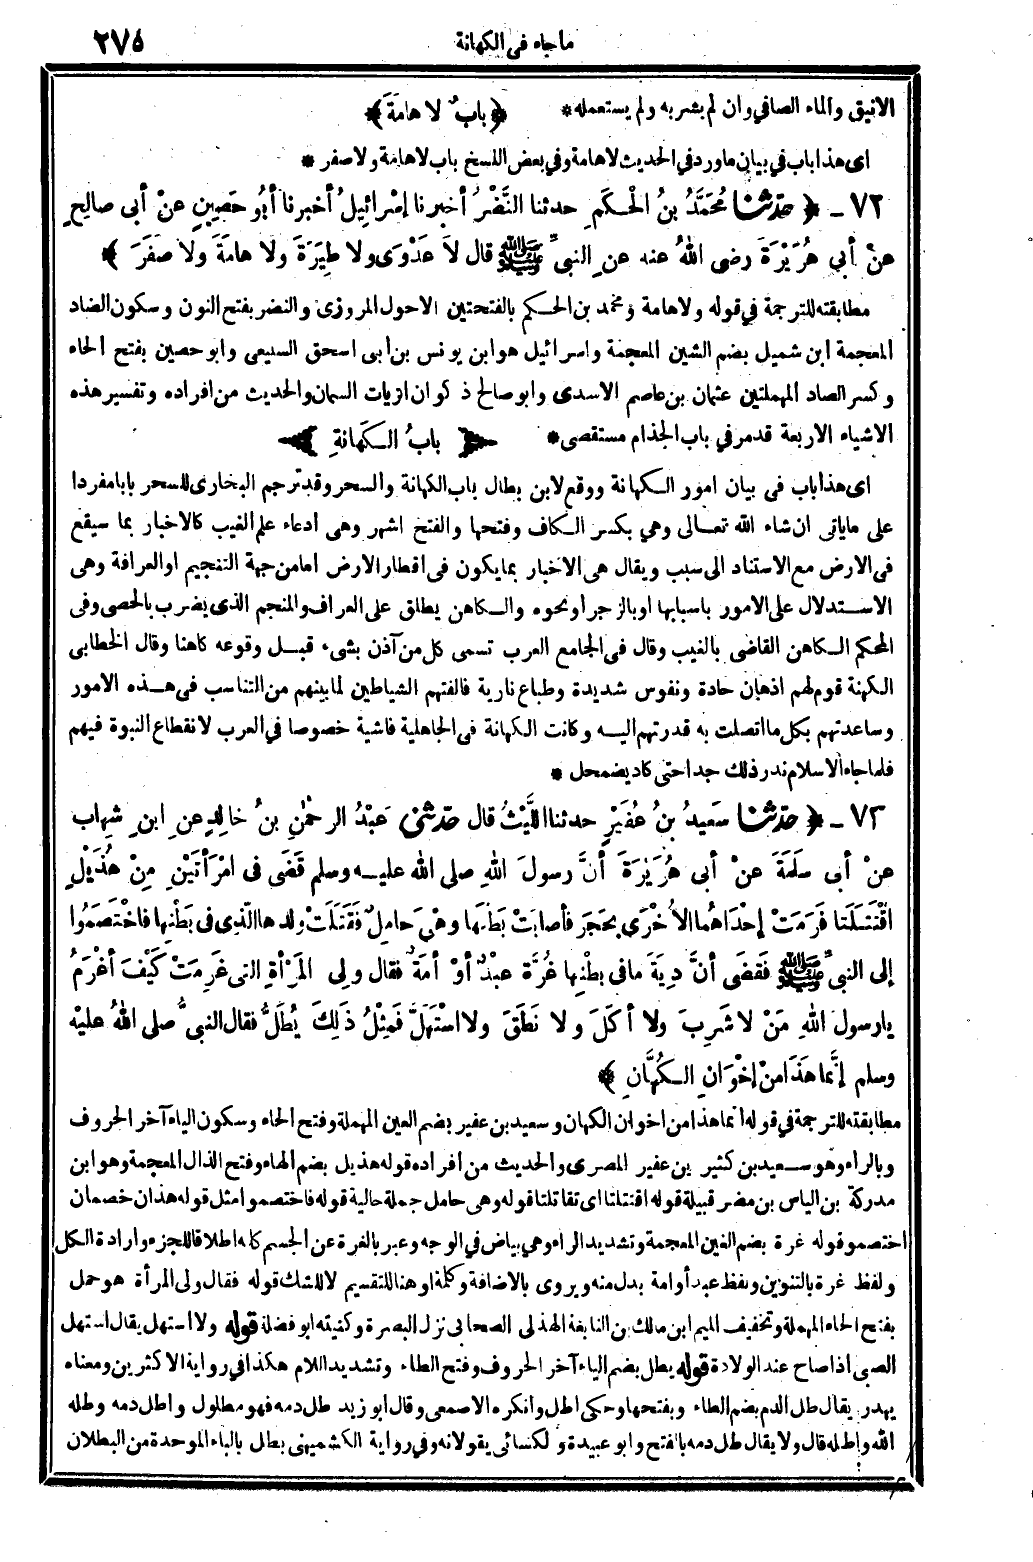 ماجاء في الكهانة ٢٧٥
الانيق والماء الصافي وان لم يشربه ولم يستعمله * ﴿ بابٌ لا هامَةَ ﴾
اى هذا باب في بيان ماورد في الحديث لاهامة وفي بعض النسخ باب لاهامة ولا صفر *
٧٢ ـ ﴿ حدثنا مُحَمَّدُ بنُ الحَكَمِ حدثنا النَّضْرُ أخبرنا إسْرائِيلُ أخبرنا أبُو حَصِينٍ عنْ أبى صالِحٍ
عنْ أبي هُرَيْرَةَ رضى اللهُ عنه عنِ النبىِّ ﷺ قال لاَ عَدْوَى ولا طِيَرَةَ ولا هامَةَ ولا صَفَرَ ﴾
مطابقته للترجمة في قوله ولاهامة ومحمد بن الحكم بالفتحتين الاحول المروزى والنضر بفتح النون وسكون الضاد
المعجمة ابن شميل بضم الشين المعجمة واسرائيل هو ابن يونس بن أبى اسحق السبيعى وابو حصين بفتح الحاء
وكسر الصاد المهملتين عثمان بن عاصم الاسدى وابو صالح ذكوان الزيات السمان والحديث من افراده وتفسير هذه
الاشياء الاربعة قد مر في باب الجذام مستقصى * بابُ الكَهانَةِ
اى هذا باب فى بيان امور الكهانة ووقع لابن بطال باب الكهانة والسحر وقد ترجم البخارى للسحر بابا مفردا
على ماياتى ان شاء الله تعالى وهي بكسر الكاف وفتحها والفتح اشهر وهى ادعاء علم الغيب كالاخبار بما سيقع
فى الارض مع الاستناد الى سبب ويقال هى الاخبار بمايكون فى اقطار الارض امامن جهة التنجيم او العرافة وهى
الاستدلال على الامور باسبابها او بالزجر أو نحوه والكاهن يطلق على العراف والمنجم الذى يضرب بالحصى وفى
المحكم الكاهن القاضى بالغيب وقال فى الجامع العرب تسمى كل من آذن بشىء قبل وقوعه كاهنا وقال الخطابى
الكهنة قوم لهم اذهان حادة ونفوس شديدة وطباع نارية فالفتهم الشياطين لما بينهم من التناسب فى هذه الامور
وساعدتهم بكل ما اتصلت به قدرتهم اليه وكانت الكهانة فى الجاهلية فاشية خصوصا في العرب لانقطاع النبوة فيهم
فلما جاء الاسلام ندر ذلك جدا حتى كاد يضمحل *
٧٣ ـ ﴿ حدثنا سَعِيدُ بنُ عُفَيْرٍ حدثنا اللَّيْثُ قال حدثنى عَبْدُ الرحْمٰنِ بنُ خالِدٍ عنِ ابنِ شِهاب
عنْ أبى سَلَمَةَ عنْ أبى هُرَيْرَةَ أنَّ رسولَ اللهِ صلى الله عليه وسلم قَضَى فى امْرَأتَيْنِ مِنْ هُذَيْلٍ
اقْتَتَلَتا فَرَمَتْ إحْدَاهُما الأُخْرَى بحَجَرٍ فأصابَتْ بَطْنَها وهْىَ حامِلٌ فَقَتَلَتْ ولَدَها الَّذِى فى بَطْنِها فاخْتَصَمُوا
إلى النبىِّ ﷺ فَقَضَى أنَّ دِيَةَ مافى بطْنِها غُرَّة عبْدٌ أوْ أمَةٌ فقال ولِى المَرْأةِ التى غَرِمَتْ كَيْفَ أغْرَمُ
يارسولَ اللهِ مَنْ لا شَرِبَ ولا أكَلَ ولا نَطَقَ ولا اسْتَهَلَّ فَمِثْلُ ذَلِكَ يُطَلُّ فقال النبىُّ صلى اللهُ عليْه
وسلم إنَّما هَذَا مِنْ إخْوَانِ الكُهَّانِ ﴾
مطابقته للترجمة في قوله انما هذا من اخوان الكهان وسعيد بن عفير بضم العين المهملة وفتح الحاء وسكون الياء آخر الحروف
وبالراء وهو سعيد بن كثير بن عفير المصرى والحديث من افراده قوله هذيل بضم الهاء وفتح الذال المعجمة وهو ابن
مدركة بن الياس بن مضر قبيلة قوله اقتتلتا اى تقاتلتا قوله وهى حامل جملة حالية قوله فاختصموا مثل قوله هذان خصمان
اختصموا قوله غرة بضم الغين المعجمة وتشديد الراء وهي بياض في الوجه وعبر بالغرة عن الجسم كله اطلاقا للجزء وارادة الكل
ولفظ غرة بالتنوين ولفظ عبد أو امة بدل منه ويروى بالاضافة وكلمة او هنا للتقسيم لا للشك قوله فقال ولى المرأة هو حمل
بفتح الحاء المهملة وتخفيف الميم ابن مالك بن النابغة الهذلى الصحابى نزل البصرة وكنيته ابو فضلة قوله ولا استهل يقال استهل
الصبى اذا صاح عند الولادة قوله يطل بضم الياء آخر الحروف وفتح الطاء وتشديد اللام هكذا في رواية الاكثرين ومعناه
يهدر يقال طل الدم بضم الطاء وبفتحها وحكى اطل وانكره الاصمعى وقال ابو زيد طل دمه فهو مطلول واطل دمه وطله
الله واطله قال ولا يقال طل دمه بالفتح وابو عبيدة والكسائى يقولانه وفي رواية الكشميهنى بطل بالباء الموحدة من البطلان